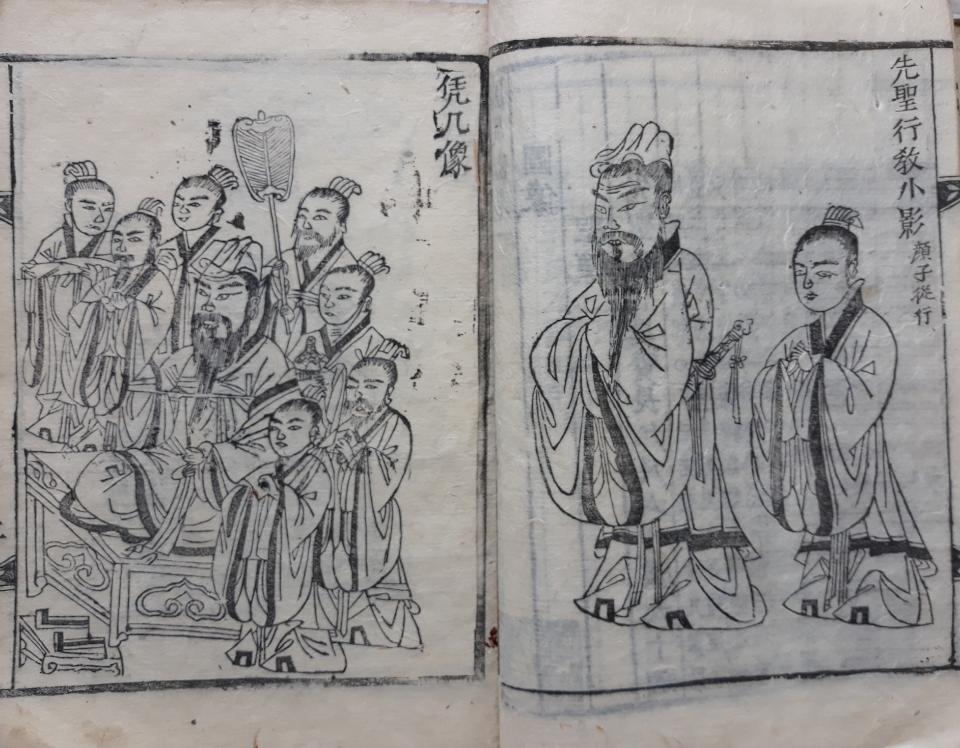 先聖行教小影 顏子從行
凭几像